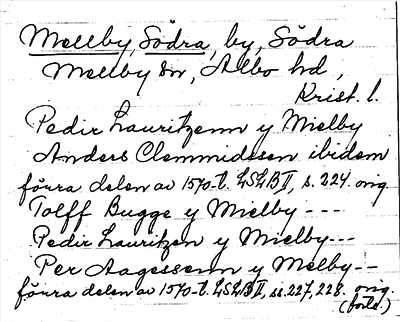 Mellby, Södra, by, Södra
Mellby sn, Albo hd,
Krist. l.
Pedir Lauritzenn y Mielby
Anders Clemmidssen ibidem
förra delen av 1570-t. LSLB II, s. 224. orig
Tolff Bugge y Mielby ---
Pedir Lauritzen y Mielby---
Per Aagessenn y Melby--
förra delen av 1570-t. LSLB II, ss. 227, 228. orig.
(forts.)